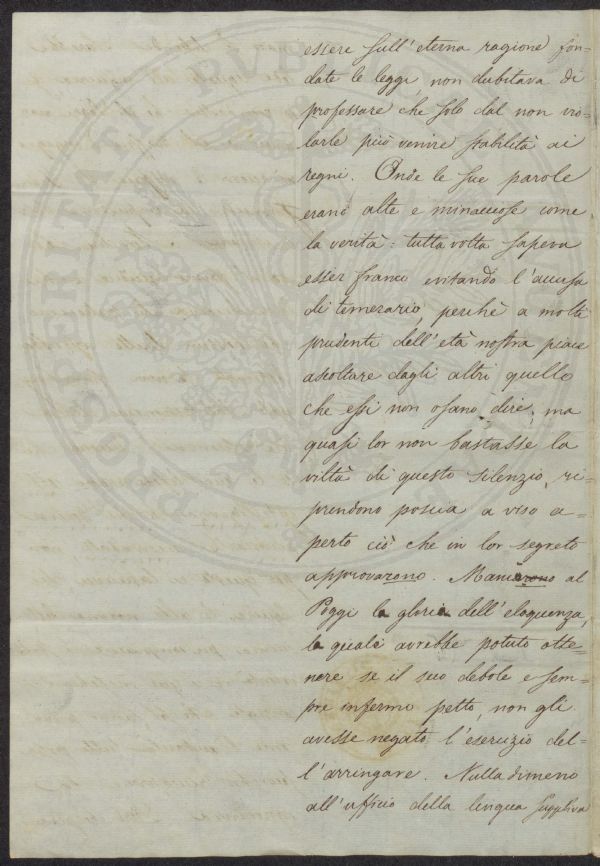 essere sull'eterna ragione fon=
date le leggi, non dubitava di
professare che solo dal non vio=
larle può venire stabilità ai
regni. Onde le sue parole
erano alte e minacciose come
la verità: tutta volta sapeva
esser franco evitando l'accusa
di temerario, perchè a molti
prudenti dell'età nostra piace
ascoltare dagli altri quello
che essi non osano dire, ma
quasi lor non bastasse la
viltà di questo silenzio, ri=
prendono poscia a viso a=
perto ciò che in lor segreto
approvarono. al
Poggi la gloria dell'eloquenza,
la quale avrebbe potuto otte=
nere se il suo debole e sem=
pre infermo petto, non gli
avesse negato l'esercizio del=
l'arringare. Nulladimeno
all'ufficio della lingua suppliva
PROSPERITATI PVB